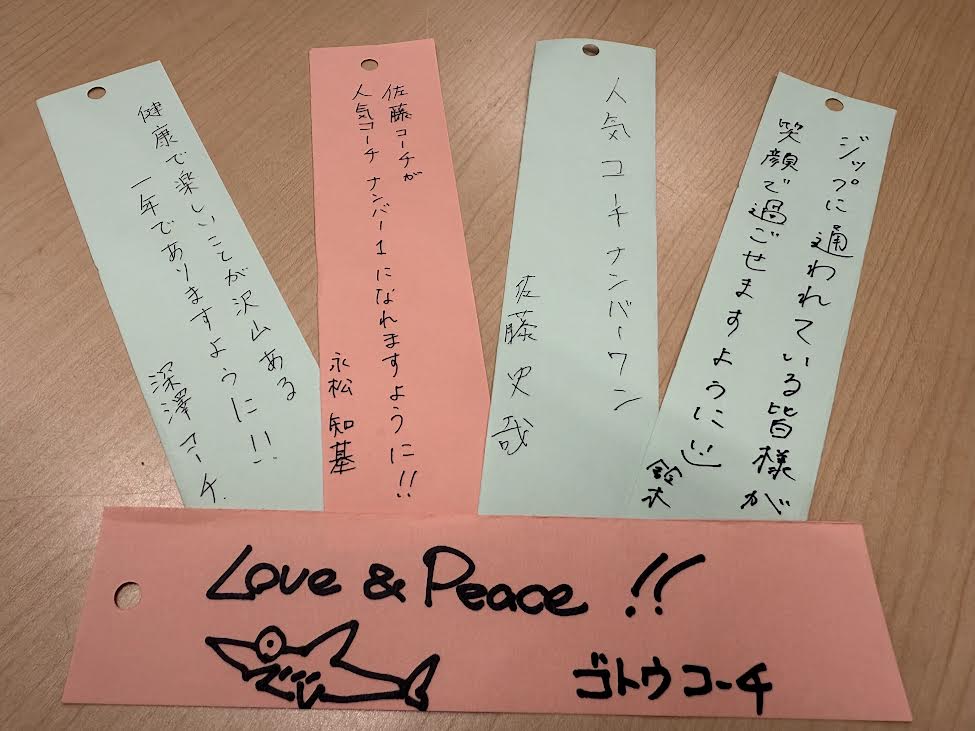 健康で楽しいことが沢山ある
一年でありますように!!
深澤コーチ.
佐藤コーチが
人気コーチ ナンバー1になれますように!!
永松 知基
人気コーチナンバーワン
佐藤 史哉
ジップに通われている皆様が
笑顔で過ごせますように
鈴木
Love & Peace !!
ゴトウコーチ